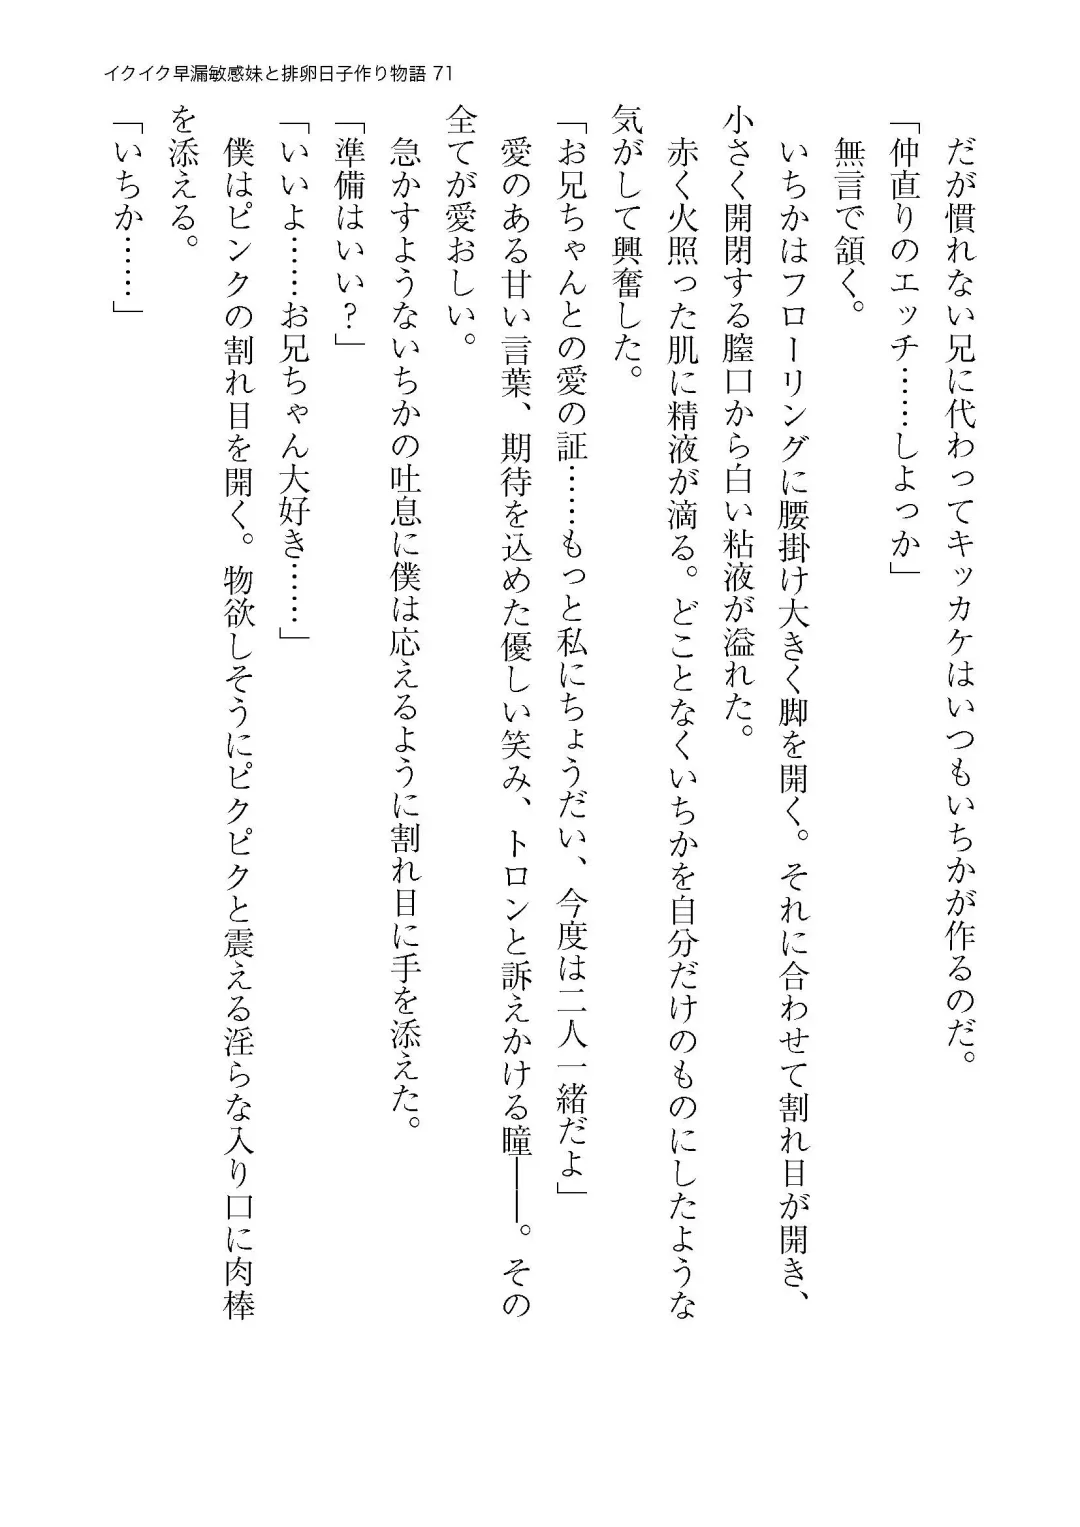 イクイク早漏敏感妹と排卵日子作り物語 71
だが慣れない兄に代わってキッカケはいつもいちかが作るのだ。
「仲直りのエッチ……しよっか」
無言で頷く。
いちかはフローリングに腰掛け大きく脚を開く。それに合わせて割れ目が開き、
小さく開閉する膣口から白い粘液が溢れた。
赤く火照った肌に精液が滴る。どことなくいちかを自分だけのものにしたような
気がして興奮した。
「お兄ちゃんとの愛の証……もっと私にちょうだい、今度は二人一緒だよ」
愛のある甘い言葉、期待を込めた優しい笑み、トロンと訴えかける瞳――。その
全てが愛おしい。
急かすようないちかの吐息に僕は応えるように割れ目に手を添えた。
「準備はいい?」
「いいよ……お兄ちゃん大好き……」
僕はピンクの割れ目を開く。物欲しそうにピクピクと震える淫らな入り口に肉棒
を添える。
「いちか……」